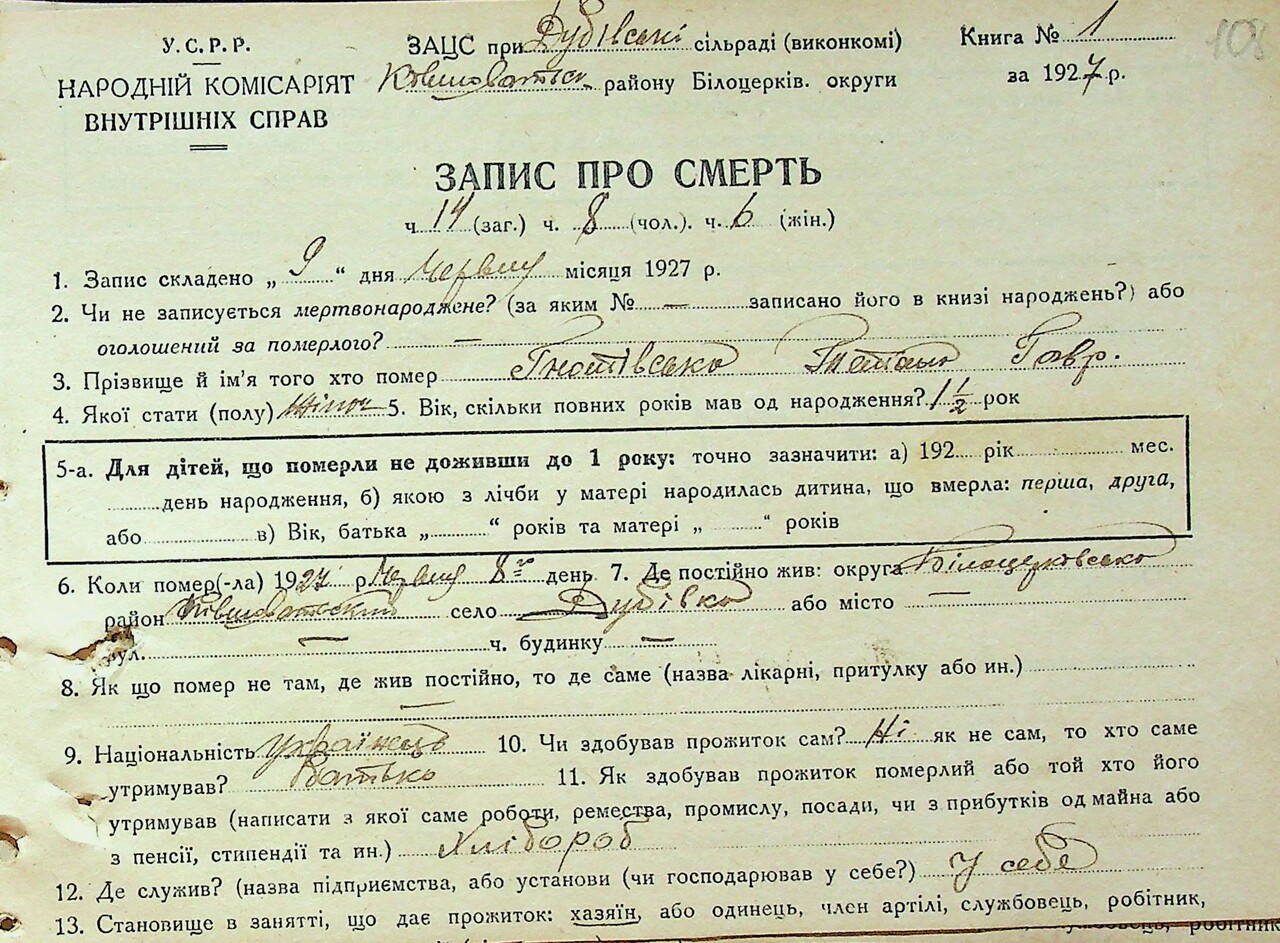 У.С.Р.Р.
НАРОДНІЙ КОМІСАРІЯТ
ВНУТРІШНІХ СПРАВ
ЗАЦС при Дубівскій сільраді (виконкомі)
району Білоцерків. округи
Книга № 1
за 1927 р.
108
ЗАПИС ПРО СМЕРТЬ
ч. 14 (заг.) ч. 8 (чол.). ч. 6 (жін.)
1. Запис складено „ 9 “ дня Червня місяця 1927 р.
2. Чи не записується мертвонароджене? (за яким № — записано його в книзі народжень?) або
оголошений за померлого? —
3. Прізвище й ім'я того хто помер Гнотівська Татьяна Гавр.
4. Якої стати (полу) жіноч 5. Вік, скільки повних років мав од народження? 1 1/2 рок
5-а. Для дітей, що померли не доживши до 1 року: точно зазначити: а) 192 рік мес.
день народження, б) якою з лічби у матері народилась дитина, що вмерла: перша, друга,
або в) Вік, батька „ “ років та матері „ “ років
6. Коли помер(-ла) 1927 р Червня 8го день 7. Де постійно жив: округа Білоцерковська
район село Дубівка або місто —
вул. — ч. будинку —
8. Як що помер не там, де жив постійно, то де саме (назва лікарні, притулку або ин.)
—
9. Національність українець 10. Чи здобував прожиток сам? Ні як не сам, то хто саме
утримував? Батько 11. Як здобував прожиток померлий або той хто його
утримував (написати з якої саме роботи, ремества, промислу, посади, чи з прибутків од майна або
з пенсії, стипендії та ин.) Хлібороб
12. Де служив? (назва підприємства, або установи (чи господарював у себе?) У себе
13. Становище в занятті, що дає прожиток: хазяїн, або одинець, член артілі, службовець, робітник,